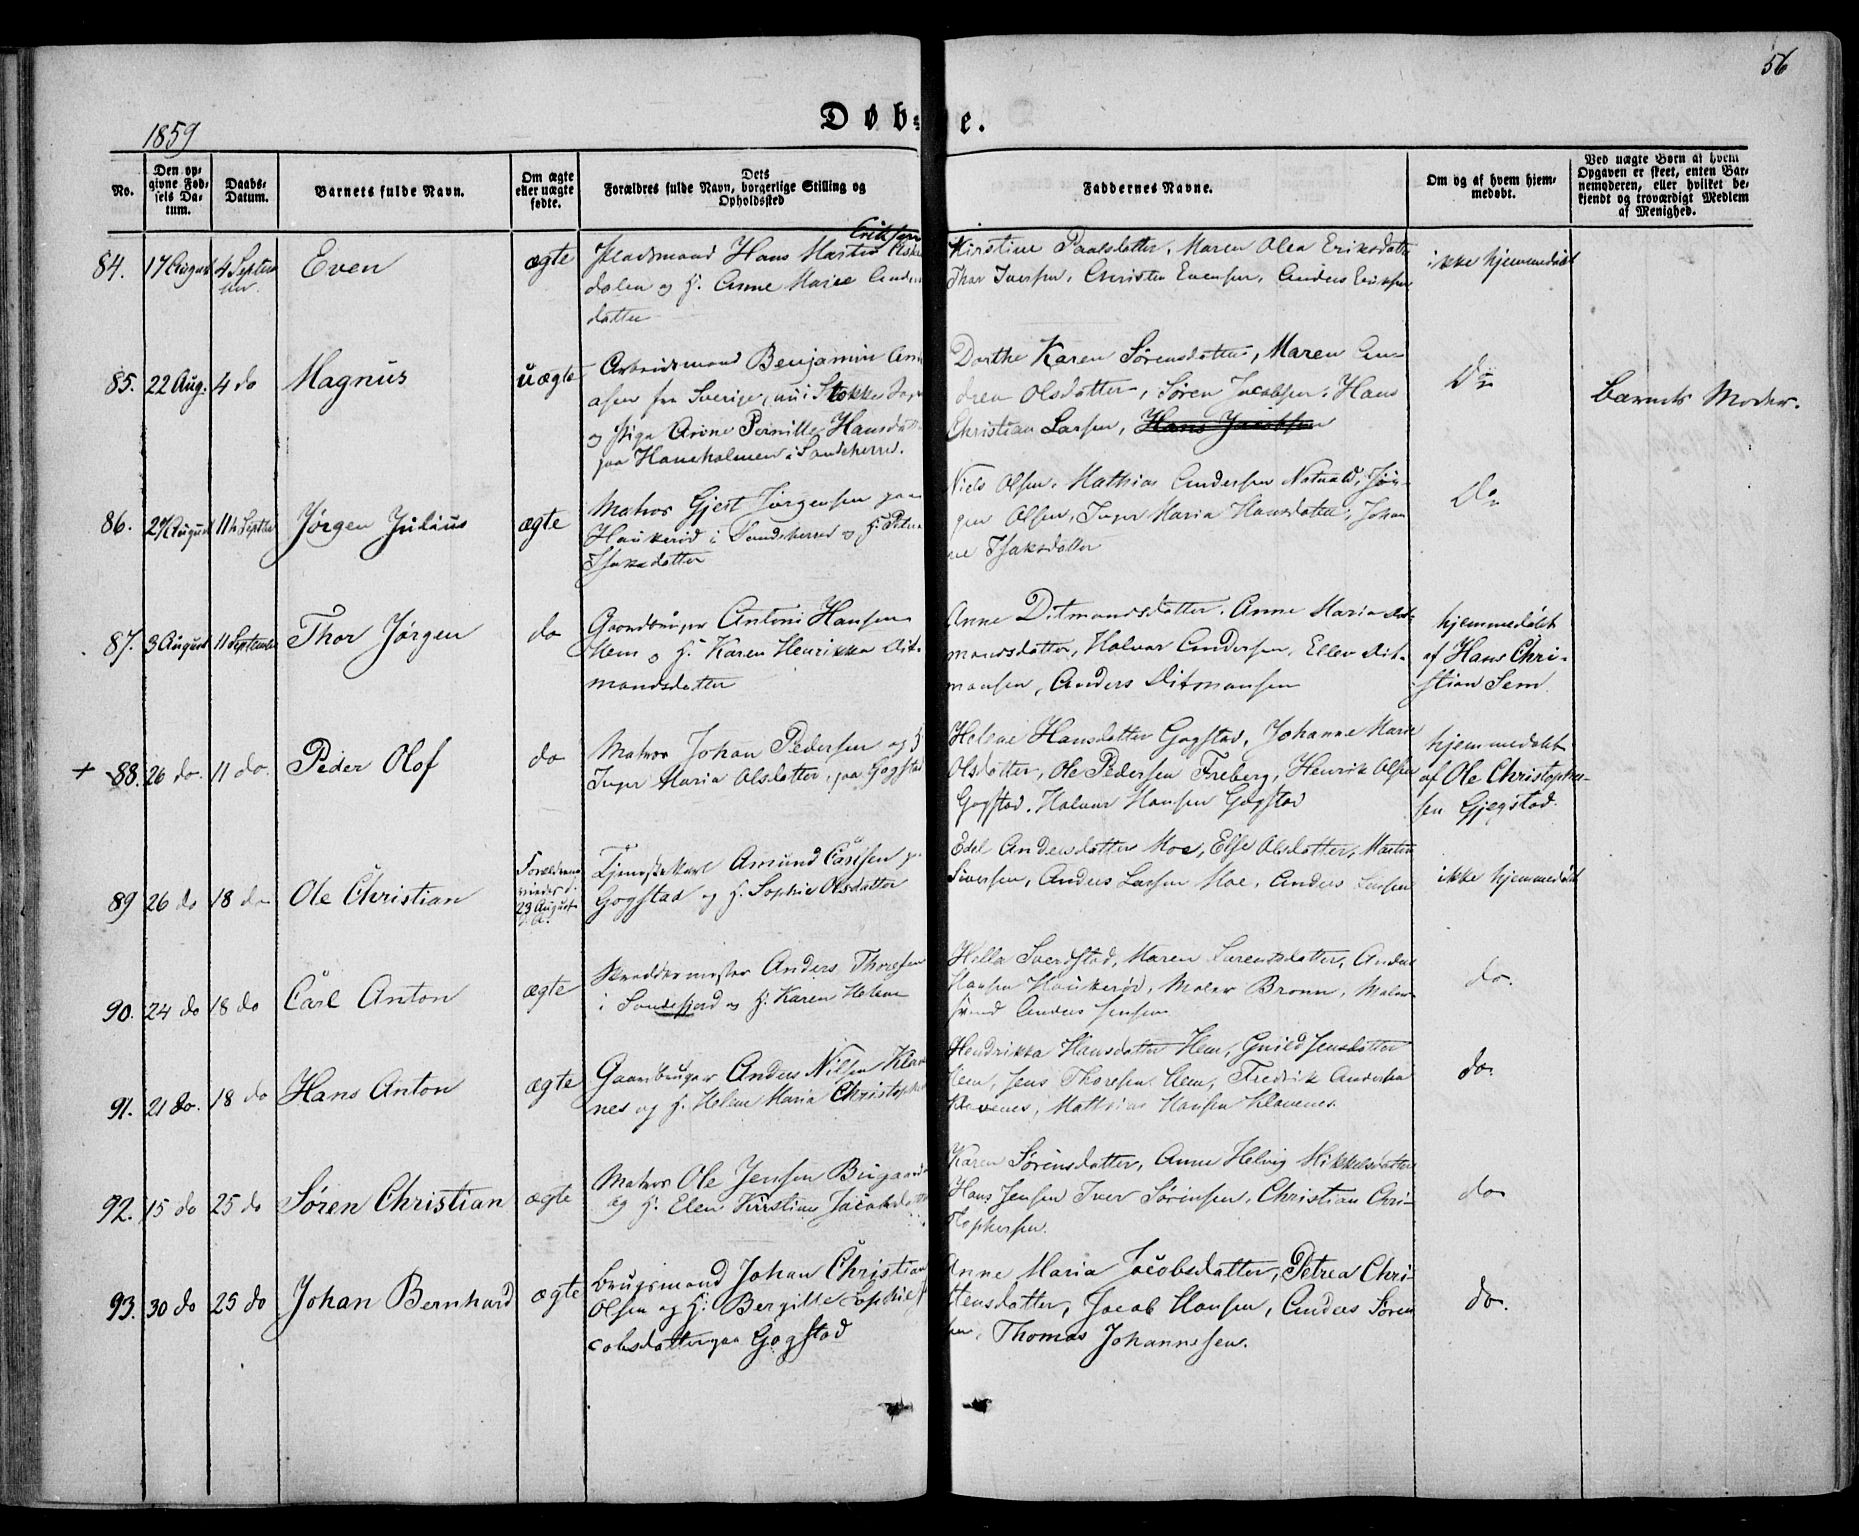 56
Døb- e.
1859
No.
Den op-
givne Fød-
sels Da-
tum.
Daabs-
Datum.
Barnets fulde Navn.
Om ægte
eller uægte
fødte.
Dets
Forældres fulde Navn, borgerlige Stilling og
Opholdssted
Faddernes Navne.
Om og af hvem hjem-
medøbt.
Ved uægte Børn af hvem
Opgaven er skeet, enten Bar-
nemoderen, eller hvilket be-
kjendt og troværdigt Medlem
af Menighed.
84. 17 August 4 Septem
ber.
Even
ægte
Eriksen
Pladsmand Hans Martin
dalen og H. Anne Marie Anders
datter
Kirstine Paalsdatter, Maren Olea Eriksdatt
Thor Iversen, Christen Evensen, Anders Eriksen
ikke hjemmedøbt
85. 22 Aug. 4 do
Magnus
uægte
Arbeidsmand Benjamin An
asen fra Sverige, nu i Stokke Sogn
og Pige Anne Pernille Hansdatt
paa Haneholmen i Sandeherred.
Dorthe Karen Sørensdatter, Maren An-
drea Olsdatter, Søren Jacobsen, Hans
Christian Larsen, Hans Jacobsen
Do
Barnets Moder.
86. 24 August 11te Septbr
Jørgen Julius
ægte
Matros Gjert Jørgensen paa
Haukerød i Sandeherred og H. Peter
Isaksdatter
Niels Olsen, Mathias Andersen Natvald, Jør-
gen Olsen, Inger Maria Hansdatter, Johan
ne Isaksdatter
Do
87. 3 August 11 September
Thor Jørgen
do
Gaardbruger Antoni Hansen
Hem og H. Karen Henrikka Dit-
mandsdatter
Anne Ditmandsdatter, Anne Maria Dit-
mandsdatter, Halvor Andersen, Ellev Dit-
mansen, Anders Ditmansen
hjemmedøbt
af Hans Chri-
stian Sem.
+ 88. 26 do. 11 do.
Peder Olof
do
Matros Johan Pedersen og H
Inger Maria Olsdatter, paa Gogstad
Helene Hansdatter Gogstad, Johanne Marie
Olsdatter, Ole Pedersen Freberg, Henrik Olsen
Gogstad, Halvor Hansen Gogstad
hjemmedøbt
af Ole Christopher-
sen Gjegstad.
89 26 do 18 do
Ole Christian
Forældrene
viedes d.
23 August
d. A.
Tjenestekarl Amund Carlsen p
Gogstad og H. Sophie Olsdatter
Edel Andersdatter Moe, Else Olsdatter, Martin
Sivertsen, Anders Larsen Moe, Anders Larsen
ikke hjemmedøbt
90. 24 do 18 do
Carl Anton
ægte
Skræddermester Anders Thoresen
i Sandefjord og H. Karen Helene
Maren Larensdatter, Anders
Hansen Haukerød, Maler Bronn, Maler-
svend Anders Jensen
do.
91. 21 do. 18 do
Hans Anton
ægte
Gaardbruger Anders Nilsen Klave
nes og H. Helene Maria Christophe
Hendrikka Hansdatter Hem, Gunild Jensdatter
Hem, Jens Thoresen Hem, Fredrik Andersen
Klavenes, Mathias Hansen Klavenes.
do.
92. 15 do 25 do
Søren Christian
ægte
Matros Ole Jensen Bugaard
og H. Elen Kirstine Jacobsda
Karen Sørensdatter, Anne Helvig Mikkelsdatter
Hans Jensen Iver Sørensen, Christian Chri-
stophersen.
do
93. 30 do 25 do
Johan Bernhard
ægte
Brugsmand Johan Christian
Olsen og H. Bergitte Sophie J
cobsdatter paa Gogstad
Anne Maria Jacobsdatter, Petrea Chri-
stensdatter, Jacob Hansen, Anders Søren
sen, Thomas Johannesen.
do.